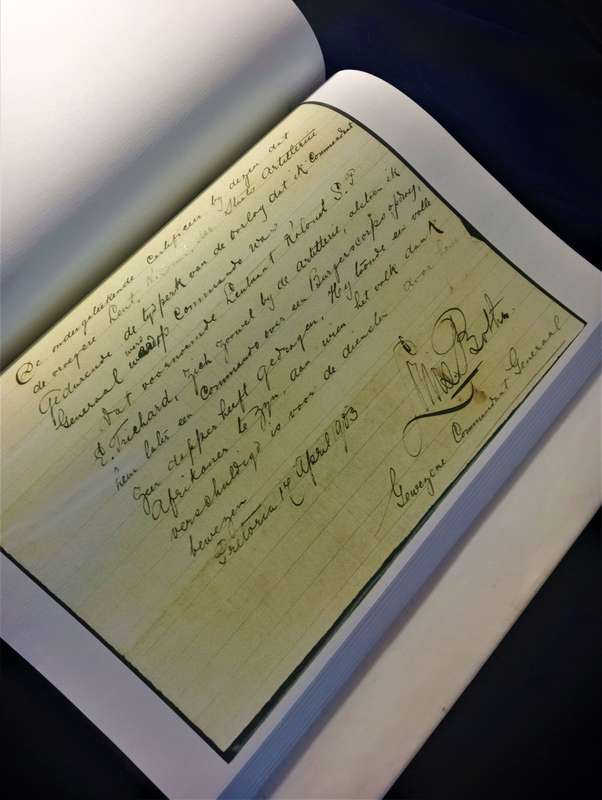 De ondergeteekende certifieer by dezen dat
de vroegere Lent. Staats Artillerie
Gedurende de tydperk van de oorlog dat ik Commandant
Generaal was op Commando was
Dat voornoemde Lieutenant Kolonel S.P
E. Trichard, zich zoowel by de Artillerie, alsook ik
hem later een Commando over een Burgerscorps opdroeg,
zeer dapper heeft gedragen, Hy toonde een volle
Afrikaner te Zyn, aan wien het volk dank
verschuldigd is voor de diensten door hem
bewezen
Pretoria 14 April 1903
Louis Botha
Gewezene Commandant Generaal